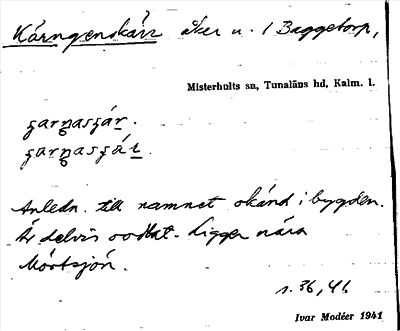 Kärngenskärr åker u. 1 Baggetorp,
Misterhults sn, Tunaläns hd, Kalm. l.
Anledn. till namnet okänd i bygden.
Är delvis oodlat. Ligger nära
Mörtsjön.
s. 36, 41.
Ivar Modéer 1941